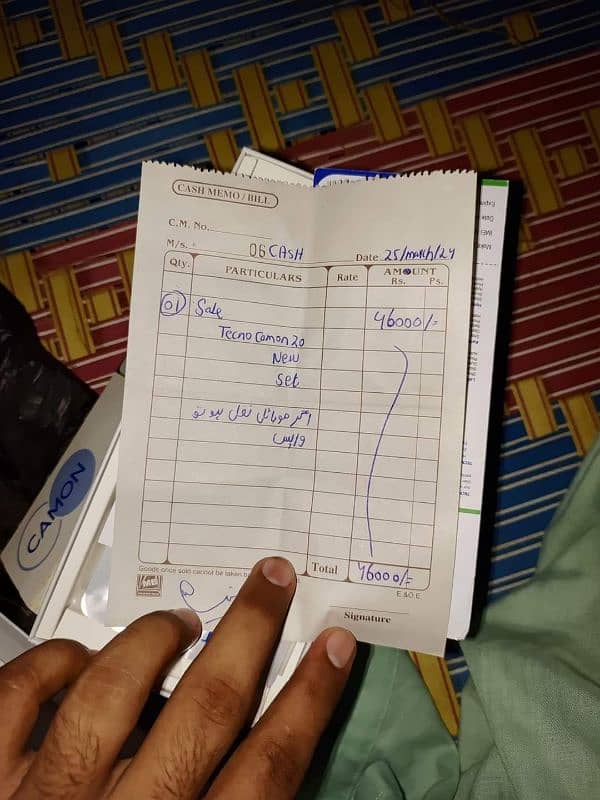 CASH MEMO / BILL
C.M. No.
M/s. 06 CASH Date 25/march/24
Qty. PARTICULARS Rate AMOUNT
Rs. Ps.
01 Sale 46000/=
Tecno Camon 20
New
Set
اگر موبائل نقل ہو تو
واپس
Goods once sold cannot be taken
Total 46000/=
E.&O.E.
Signature
CAMON